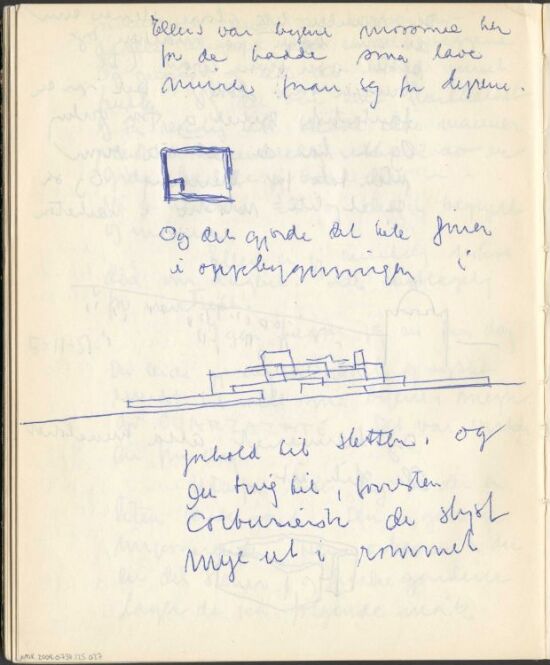 Ellers var byene morsomme her
for de hadde små lave
murer foran seg for dyrene.
Og det gjorde det hele finere
i oppbyggningen i
forhold til sletten. og
du det, forresten
Corbusiersk de skjøt
mye ut i rommet
NMK.2008.0734.125.037